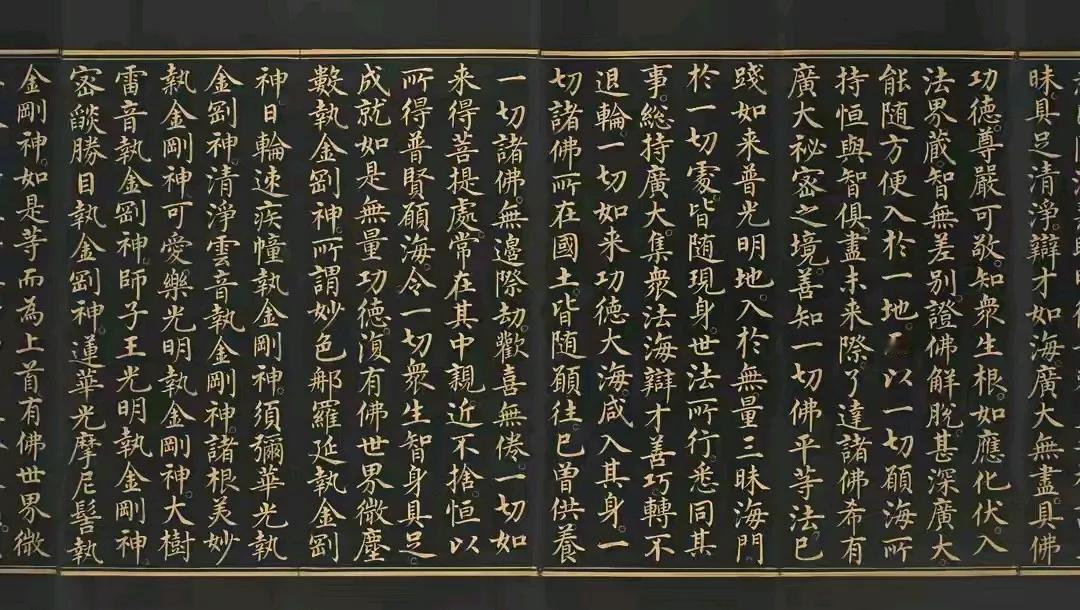 昧具足清淨辯才如海廣大無盡具佛
功德尊嚴可敬知衆生根如應化伏入
法界藏智無差別證佛解脫甚深廣大
能随方便入於一地以一切願海所
持恒與智俱盡未来際了達諸佛希有
廣大祕密之境善知一切佛平等法已
踐如来普光明地入於無量三昧海門
於一切處皆随現身世法所行悉同其
事総持廣大集衆法海辯才善巧轉不
退輪一切如来功德大海咸入其身一
切諸佛所在國土皆随願往已曾供養
一切諸佛無邊際劫歡喜無倦一切如
来得菩提處常在其中親近不捨恒以
所得普賢願海令一切衆生智身具足
成就如是無量功德復有佛世界微塵
數執金剛神所謂妙色那羅延執金剛
神日輪速疾幢執金剛神須彌華光執
金剛神清淨雲音執金剛神諸根美妙
執金剛神可愛樂光明執金剛神大樹
雷音執金剛神師子王光明執金剛神
密燄勝目執金剛神蓮華光摩尼髻執
金剛神如是等而為上首有佛世界微